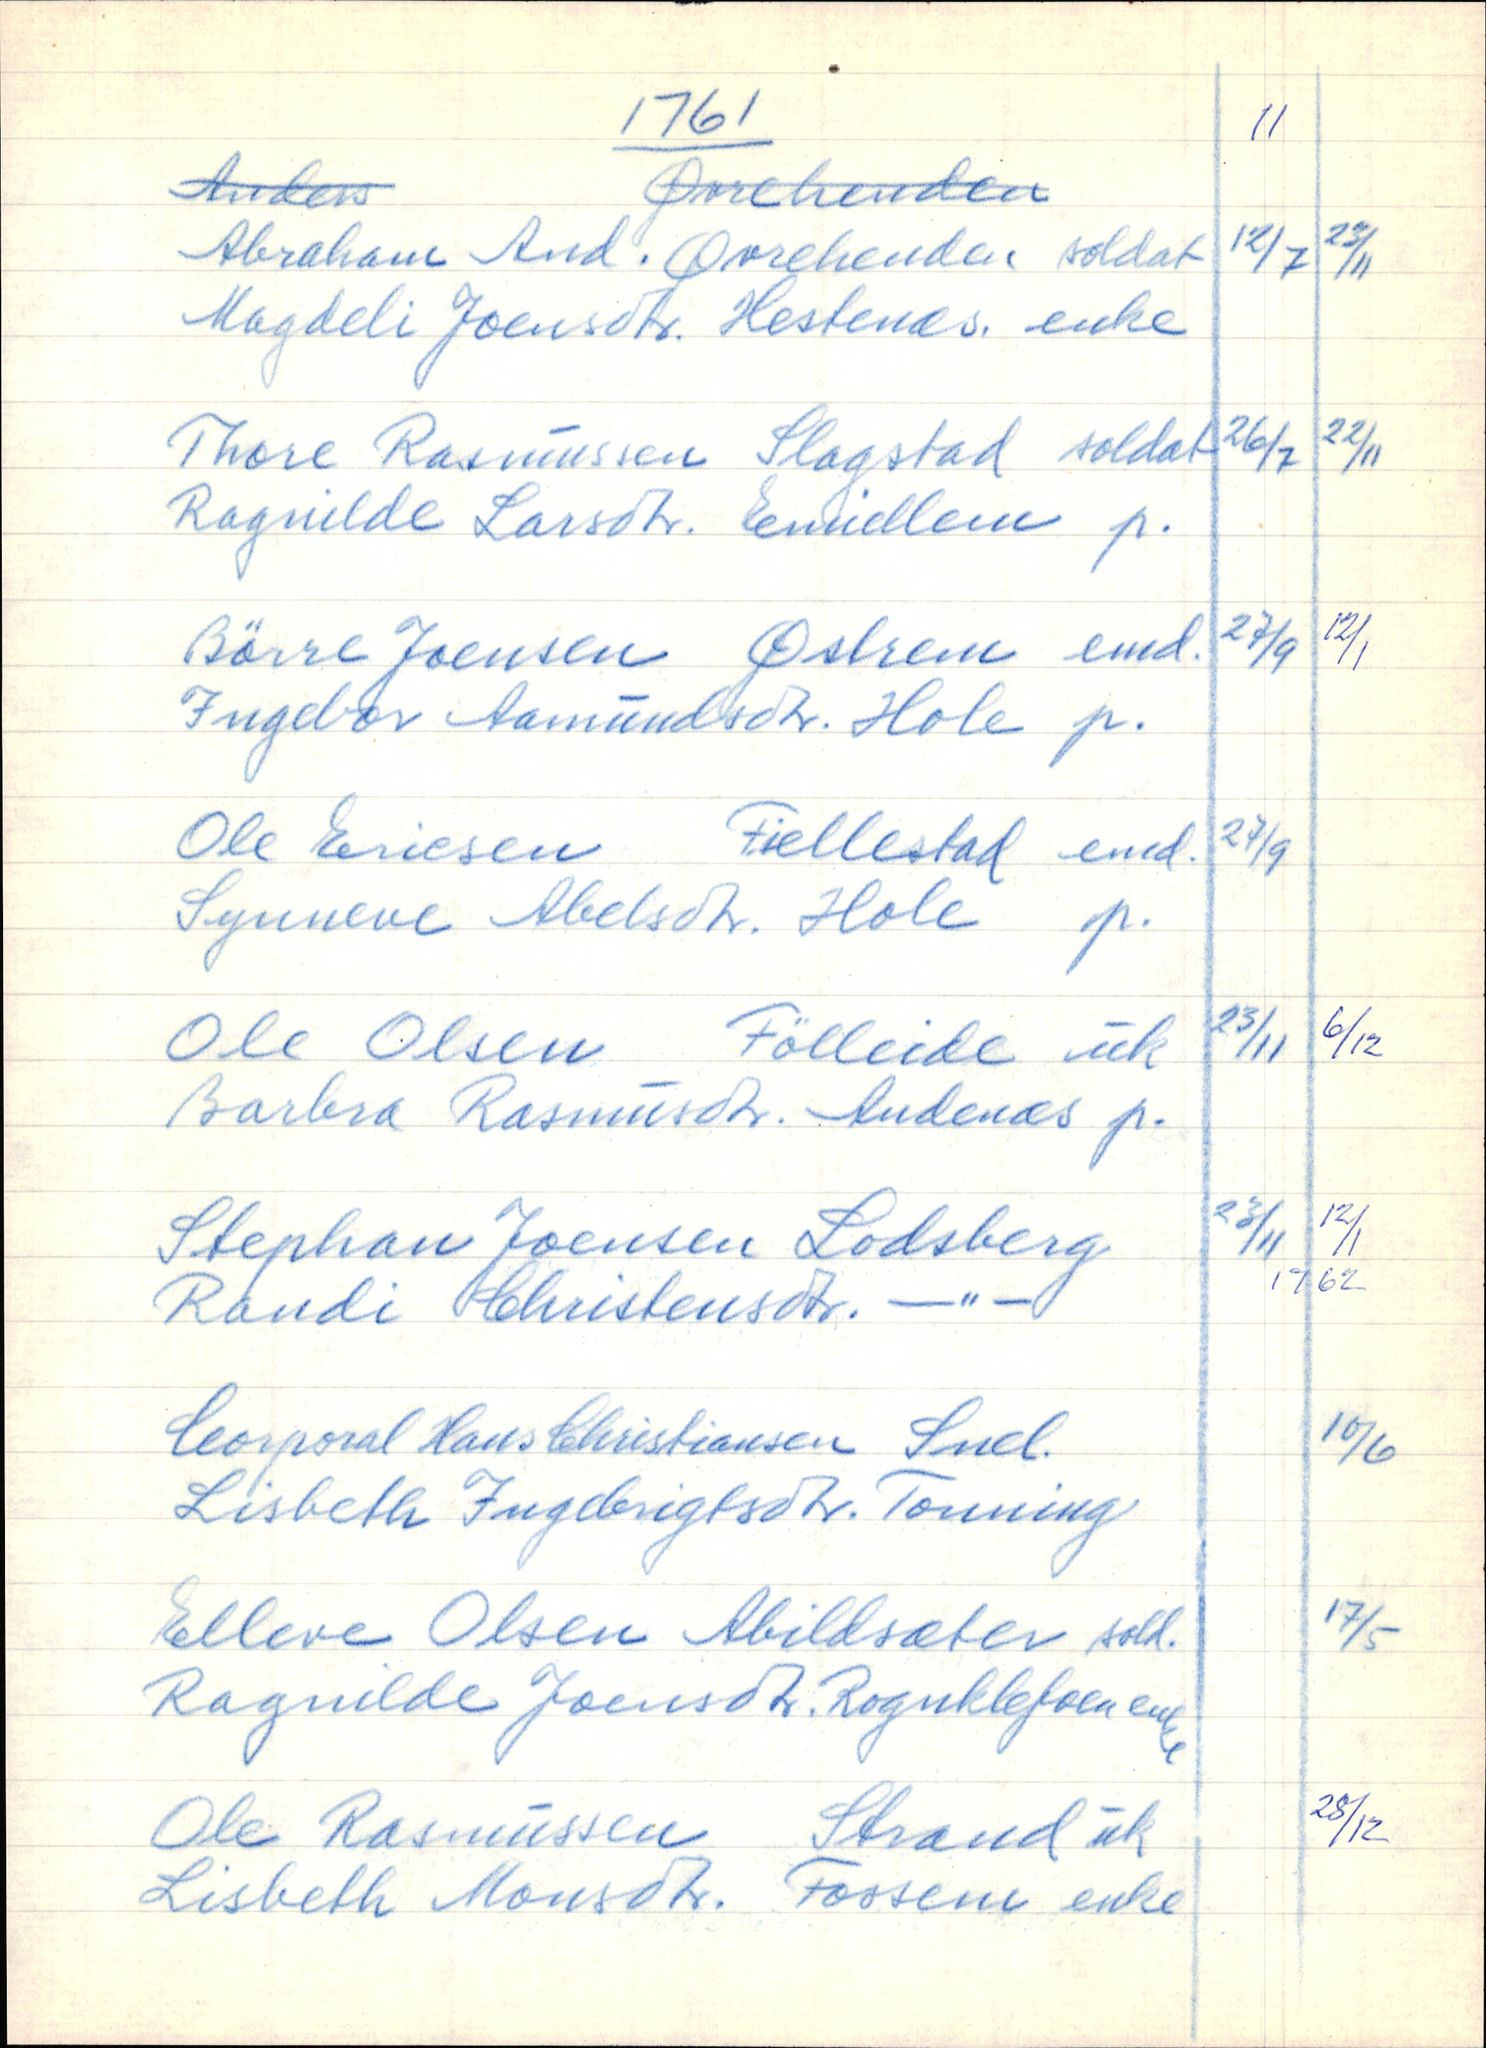 1761 11
Anders Øvrehenden
Abraham And. Øvrehenden soldat 12/7 23/11
Magdeli Joensdtr. Hestenæs. enke
Thore Rasmūssen Slagstad soldat 26/7 22/11
Ragnilde Larsdtr. Emidlem p.
Börre Joensen Østrem emd. 27/9 12/1
Ingebor Aamūndsdtr. Hole p.
Ole Ericsen Fiellestad emd. 27/9
Synneve Abelsdtr. Hole p.
Ole Olsen Fölleide ūk 23/11 6/12
Barbra Rasmūsdtr. Andenæs p.
Stephan Joensen Lodsberg 23/11 12/1
Randi Christensdtr. —"— 1762
Corporal Hans Christiansen Snel. 10/6
Lisbeth Ingebrigtsdtr. Tonning
Elleve Olsen Abildsæter sold. 17/5
Ragnilde Joensdtr. Rognklefoen enke
Ole Rasmūssen Strand ūk 28/12
Lisbeth Monsdtr. Fossem enke